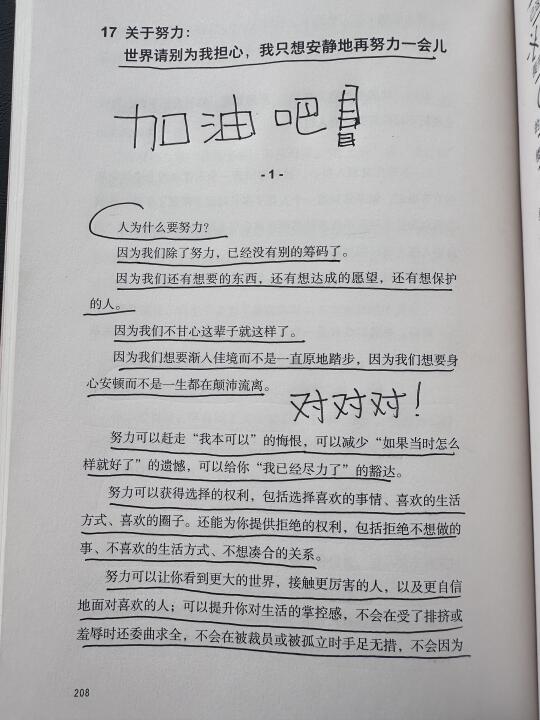 17 关于努力：
世界请别为我担心，我只想安静地再努力一会儿
加油吧
-1-
人为什么要努力？
因为我们除了努力，已经没有别的筹码了。
因为我们还有想要的东西，还有想达成的愿望，还有想保护
的人。
因为我们不甘心这辈子就这样了。
因为我们想要渐入佳境而不是一直原地踏步，因为我们想要身
心安顿而不是一生都在颠沛流离。
对对对！
努力可以赶走“我本可以”的悔恨，可以减少“如果当时怎么
样就好了”的遗憾，可以给你“我已经尽力了”的豁达。
努力可以获得选择的权利，包括选择喜欢的事情、喜欢的生活
方式、喜欢的圈子。还能为你提供拒绝的权利，包括拒绝不想做的
事、不喜欢的生活方式、不想凑合的关系。
努力可以让你看到更大的世界，接触更厉害的人，以及更自信
地面对喜欢的人；可以提升你对生活的掌控感，不会在受了排挤或
羞辱时还委曲求全，不会在被裁员或被孤立时手足无措，不会因为
208